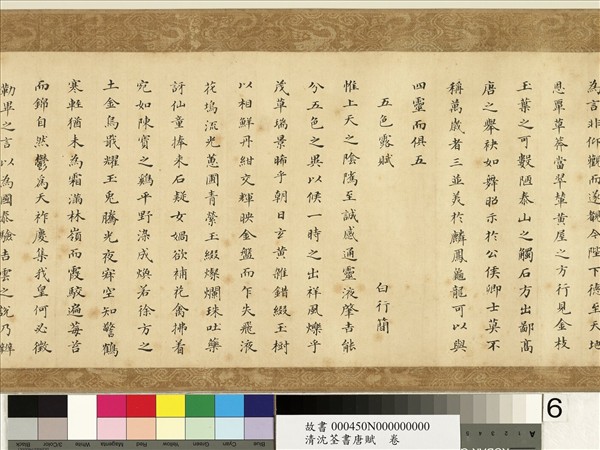 為言非仰觀而遂翻令陛下德至天地
恩覃草莽當翠華黃屋之方行見金枝
玉葉之可數陋泰山之觸石方出鄙高
唐之舉袂如舞昭示於公侯卿士莫不
稱萬歲者三並美於麟鳳龜龍可以與
四靈而俱五
五色露賦
白行簡
惟上天之陰騭至誠感通靈液肇吉能
分五色之異以候一時之出祥風爍乎
茂草瑞景晞乎朝日玄黃雜錯綴玉樹
以相鮮丹紺交輝映金盤而乍失飛液
花塢流光蕙圃青縈玉綴燦爛珠吐藥
訝仙童捧來石疑女媧欲補花禽拂着
宛如陳寶之鷄平野滌成煥若徐方之
土金烏戢耀玉兔騰光夜寂空知警鶴
寒輕猶未為霜滿林嶺而霞駮遍莓苔
而錦自然鬱為天祚慶集我皇何必徵
勒畢之言以為國泰驗吉雲之說乃辨
6
故書 000450N000000000
清沈荃書唐賦 卷
Black
3/Color
White
Magenta
Red
Yellow
Green
Cyan
Blue
A